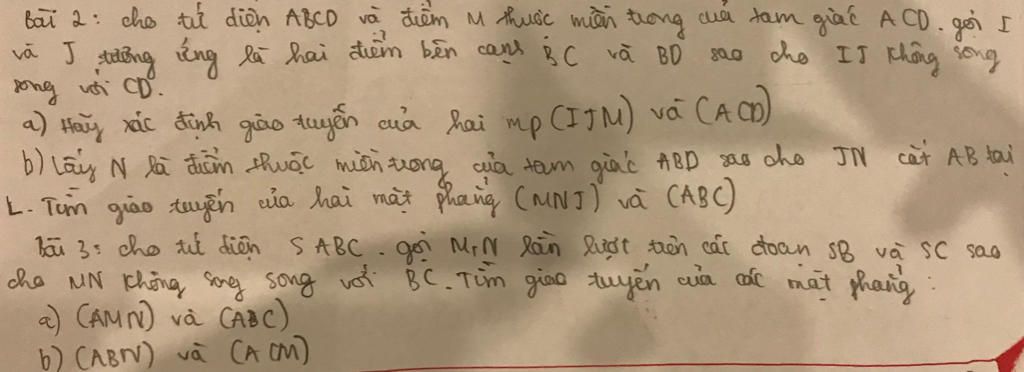 Bài 2: cho tứ diện ABCD và điểm M thuộc miền trong của tam giác ACD. gọi I
và J tương ứng là hai điểm bên cạnh BC và BD sao cho IJ không song
song với CD.
a) Hãy xác định giao tuyến của hai mp (IJM) và (ACD)
b) Lấy N là điểm thuộc miền trong của tam giác ABD sao cho JN cắt AB tại
L. Tìm giao tuyến của hai mặt phẳng (MNJ) và (ABC)
Bài 3: cho tứ diện SABC. gọi M,N lần lượt trên các đoạn SB và SC sao
cho MN không song song với BC. Tìm giao tuyến của các mặt phẳng:
a) (AMN) và (ABC)
b) (ABN) và (ACM)